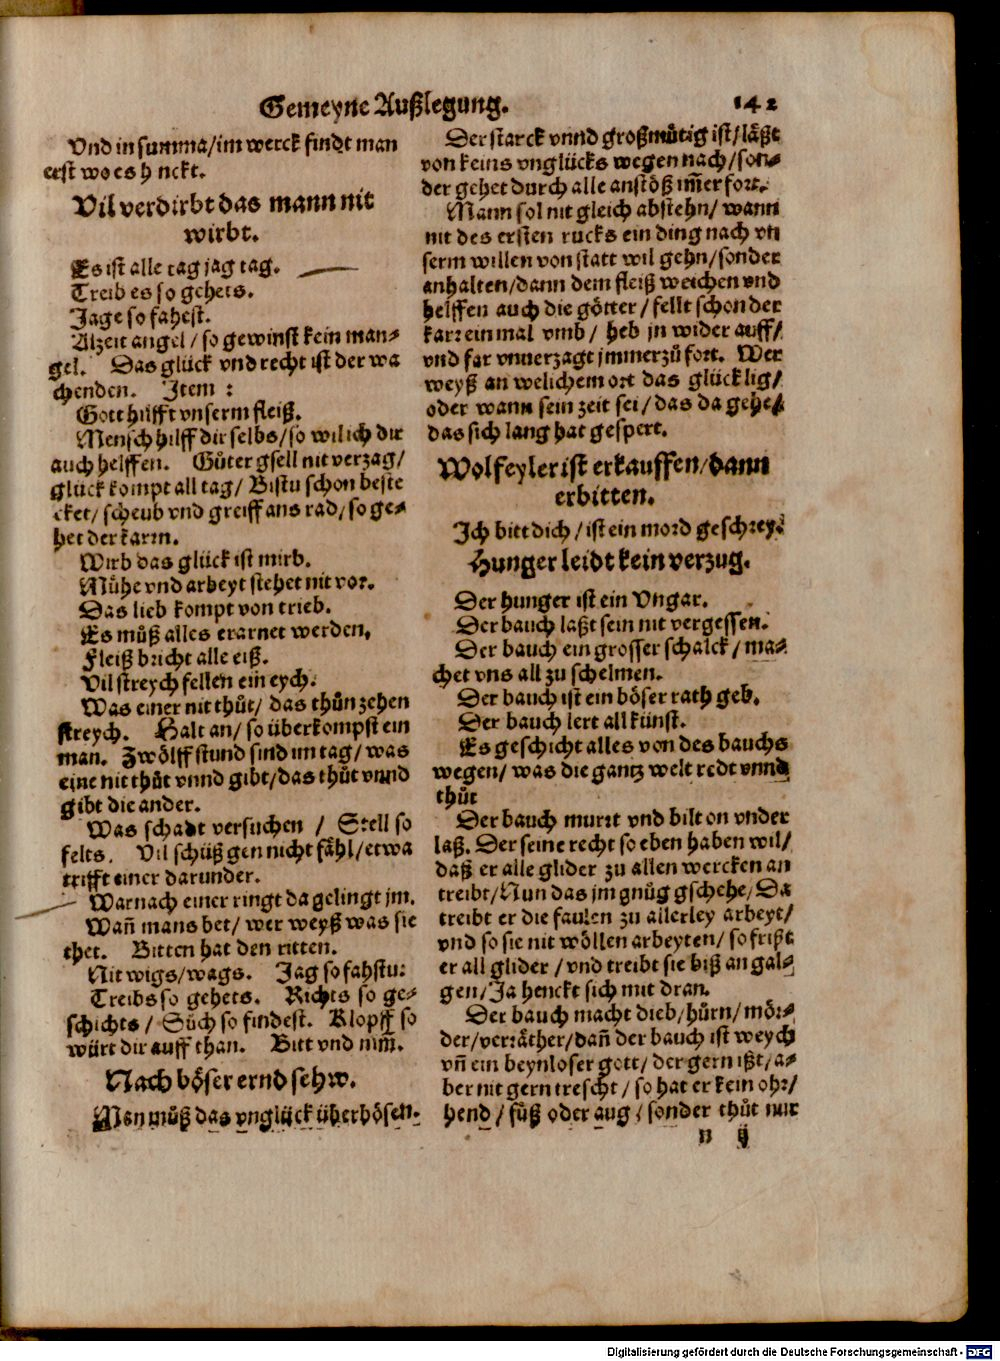 Gemeyne Außlegung. 142
Vnd in summa/im werck findt man
erst wo es h nckt.
Vil verdirbt das mann nit
wirbt.
Es ist alle tag jag tag.
Treib es so gehets.
Jage so fahest.
Alzeit angel/so gewinst kein man⸗
gel. Das glück vnd recht ist der wa
chenden. Item:
Gott hilfft vnserm fleiß.
Mensch hilff dir selbs/so wil ich dir
auch helffen. Gůter gsell nit verzag/
glück kompt all tag/ Bistu schon beste
cket/scheub vnd greiff ans rad/so ge⸗
het der karrn.
Wirb das glück ist mirb.
Mühe vnd arbeyt stehet nit vor.
Das lieb kompt von trieb.
Es můß alles erarnet werden,
Fleiß bricht alle eiß.
Vil streych fellen ein eych.
Was einer nit thůt/ das thůn zehen
streych. Halt an/ so überkompst ein
man. Zwölff stund sind im tag/was
eine nit thůt vnnd gibt/das thůt vnnd
gibt die ander.
Was schadt versuchen / Stell so
felts. Vil schüß gen nicht fähl/etwa
trifft einer darunder.
Warnach einer ringt da gelingt jm.
Wañ mans bet/ wer weyß was sie
thet. Bitten hat den ritten.
Nit wigs/wags. Jag so fahstu:
Treibs so gehets. Richts so ge⸗
schichts/ Sůch so findest. Klopff so
würt dir auff than. Bitt vnd nim̃.
Nach böser ernd sehw.
Man můß das vnglück überbösen.
Der starck vnnd großmůtig ist/läßt
von keins vnglücks wegen nach/son⸗
der gehet durch alle anstöß im̃er fort.
Mann sol nit gleich abstehn/ wann
nit des ersten rucks ein ding nach vn
serm willen von statt wil gehn/sonder
anhalten/dann dem fleiß weichen vnd
helffen auch die götter/fellt schon der
karr ein mal vmb/ heb jn wider auff/
vnd far vnuerzagt jmmerzů fort. Wer
weyß an welichem ort das glück lig/
oder wann sein zeit sei/das da gehe/
das sich lang hat gespert.
Wolfeyler ist erkauffen/dann
erbitten.
Ich bitt dich/ist ein mord geschrey.
Hunger leidt kein verzug.
Der hunger ist ein Vngar.
Der bauch laßt sein nit vergessen.
Der bauch ein grosser schalck/ma⸗
chet vns all zu schelmen.
Der bauch ist ein böser rath geb.
Der bauch lert all künst.
Es geschicht alles von des bauchs
wegen/ was die gantz welt redt vnnd
thůt
Der bauch murrt vnd bilt on vnder
laß. Der seine recht so eben haben wil/
daß er alle glider zu allen wercken an
treibt/Nun das jm gnůg gschehe/Da
treibt er die faulen zu allerley arbeyt/
vnd so sie nit wöllen arbeyten/so frißt
er all glider/vnd treibt sie biß an gal⸗
gen/Ja henckt sich mit dran.
Der bauch macht dieb/hůrn/mör⸗
der/verräther/dañ der bauch ist weych
vñ ein beynloser gott/der gern ißt/a⸗
ber nit gern trescht/so hat er kein ohr/
hend/füß oder aug/sonder thůt nur
n ij
Digitalisierung gefördert durch die Deutsche Forschungsgemeinschaft - DFG